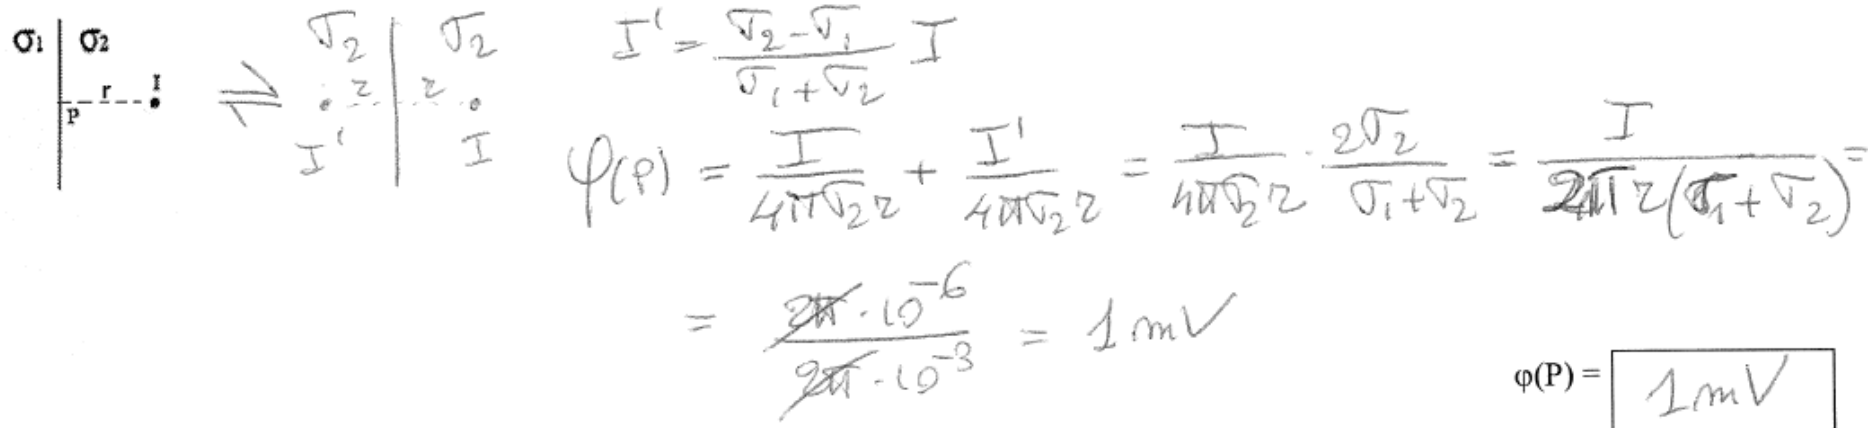 σ1 | σ2
r I
P
⇌
σ2 | σ2
r r
I' I
I' = (σ2 - σ1)/(σ1 + σ2) I
φ(P) = I/(4πσ2 r) + I'/(4πσ2 r) = I/(4πσ2 r) · 2σ2/(σ1 + σ2) = I/(2π r (σ1 + σ2)) =
= 2π · 10^-6/(2π · 10^-3) = 1 mV
φ(P) = 1 mV